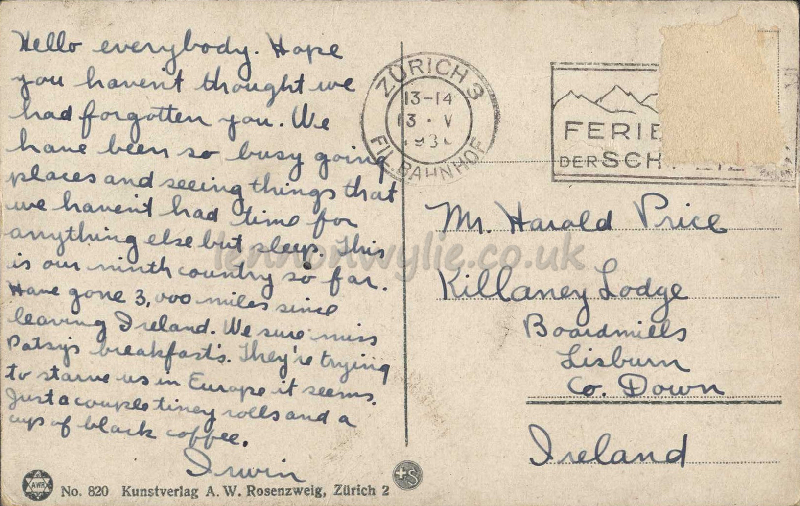 Hello everybody. Hope
you haven't thought we
had forgotten you. We
have been so busy going
places and seeing things that
we haven't had time for
anything else but sleep. This
is our ninth country so far.
Have gone 3,000 miles since
leaving Ireland. We sure miss
Patsy's breakfast's. They're trying
to starve us in Europe it seems.
Just a couple tiney rolls and a
cup of black coffee.
Irwin
ZÜRICH 3
13-14
13. V
193
FIL. BAHNHOF
FERIE
DER SCH
Mr. Harold Price
Killaney Lodge
Boardmills
Lisburn
Co. Down
Ireland
lennonwylie.co.uk
AWR
No. 820 Kunstverlag A. W. Rosenzweig, Zürich 2
+S